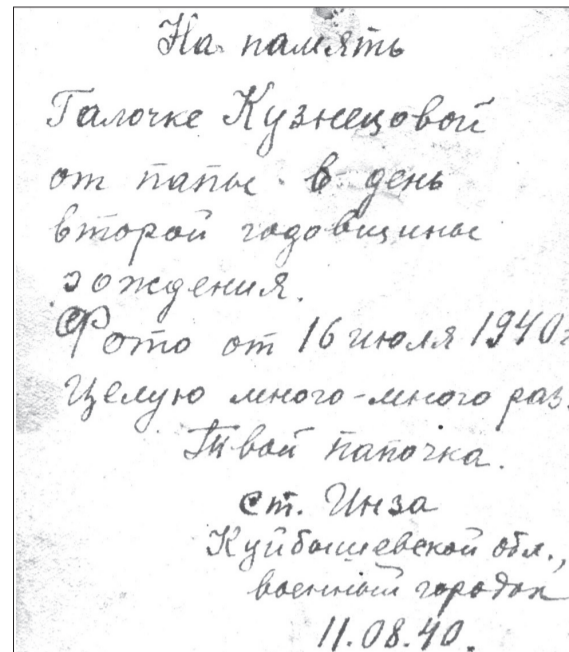 На память
Галочке Кузнецовой
от папы в день
второй годовщины
рождения.
Фото от 16 июля 1940г
Целую много-много раз.
Твой папочка.
ст. Инза
Куйбышевской обл.,
военный городок
11.08.40.